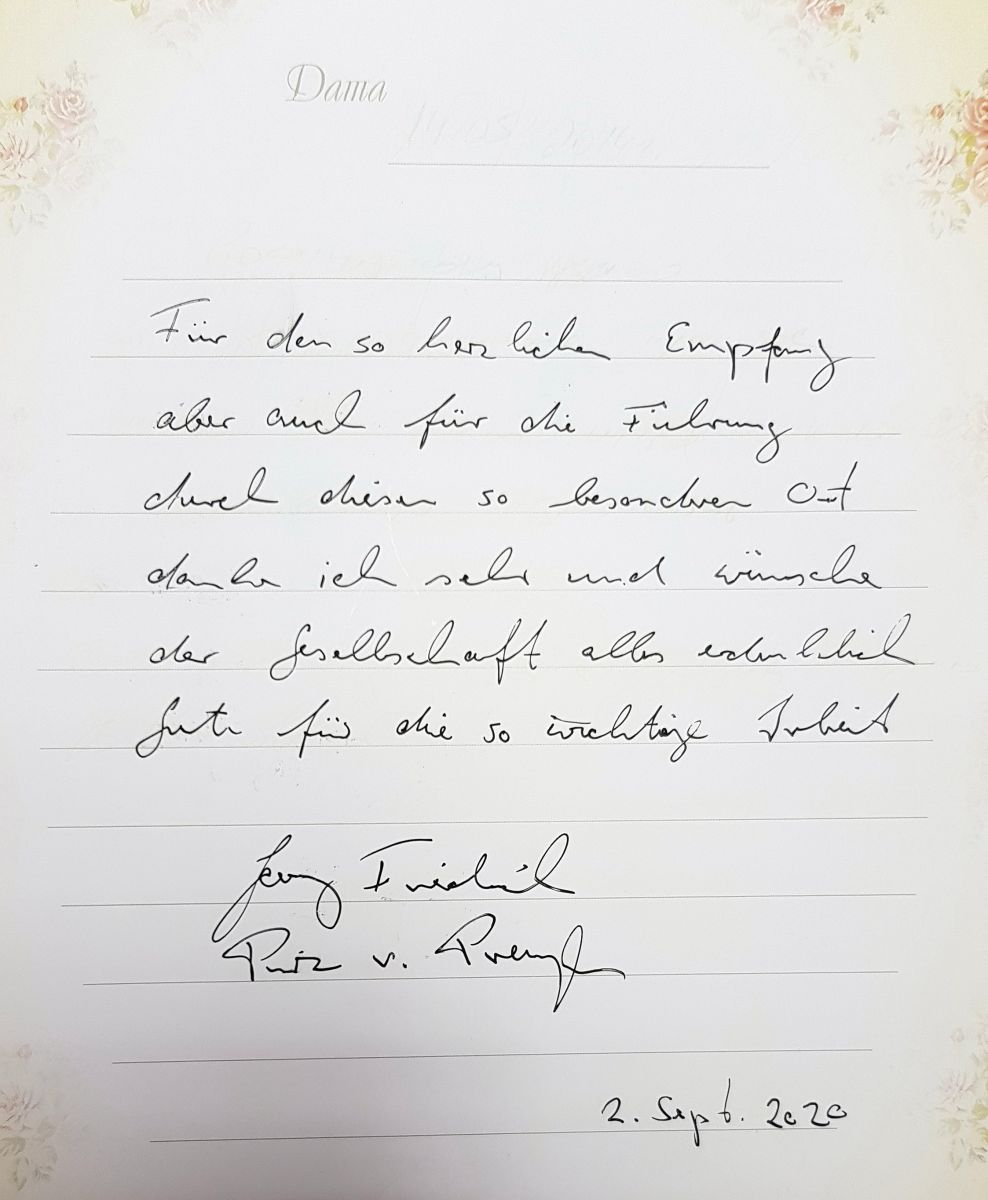 Dama
Für den so herzlichen Empfang
aber auch für die Führung
durch diesen so besonderen Ort
danke ich sehr und wünsche
der Gesellschaft alles erdenklich
Gute für die so wichtige Arbeit
Georg Friedrich
Prinz v. Preußen
2. Sept. 2020